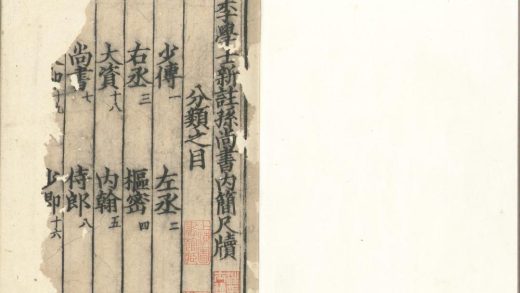 李學士新註孫尚書內簡尺牘
分類之目
少傳一 左丞二
右丞三 樞密四
大資十八 內翰五
尚書七 侍郎八
十九 少卽十六